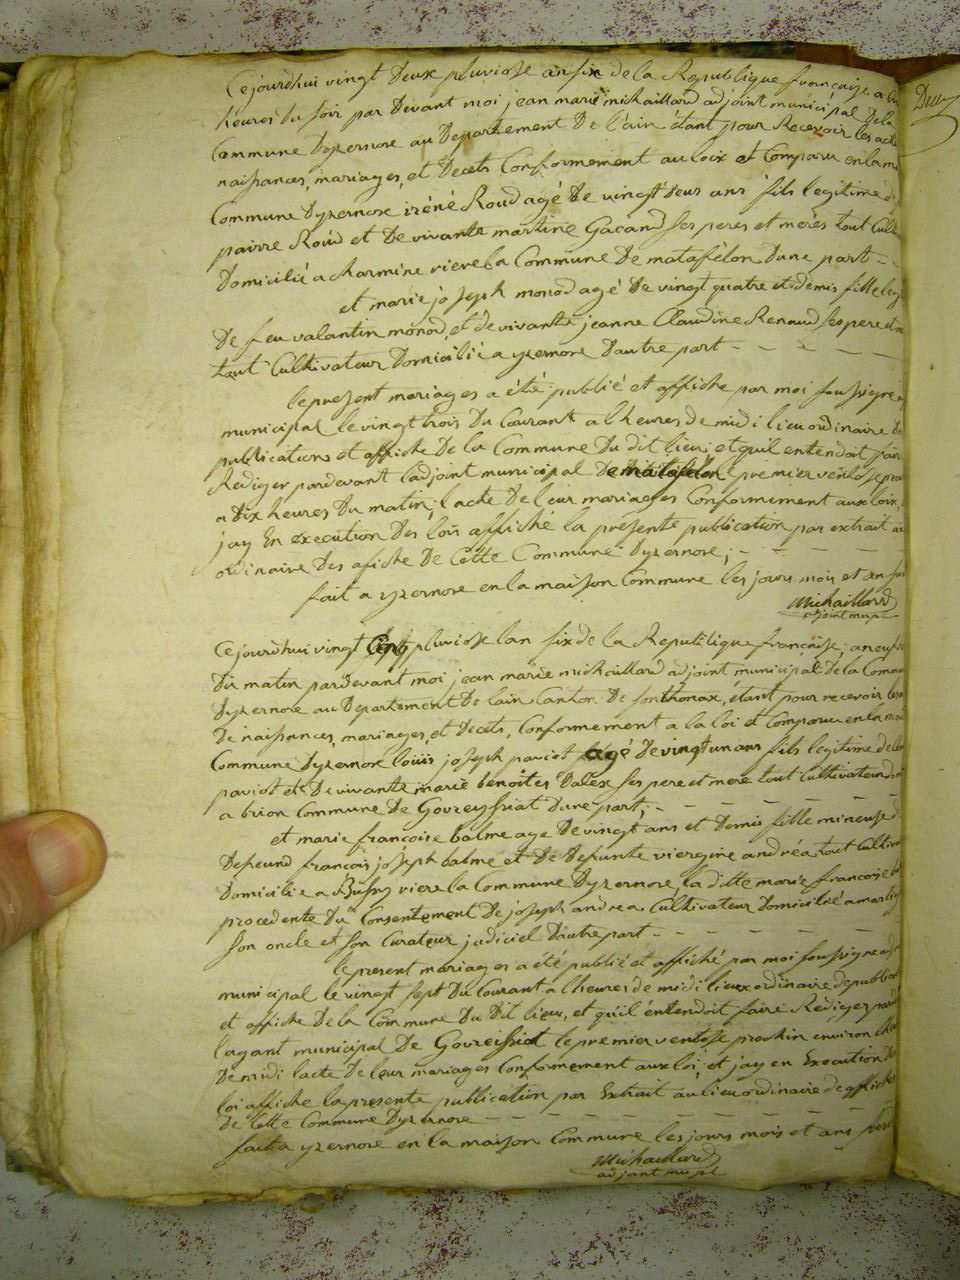 Cejourd'hui vingt Deux pluviose an six de la Republique françaize a
heures du soir par Devant moi jean marie michaillard adjoint municipal De la
Commune Dyzernore au Departement De l'ain étant pour Recevoir les acte
naissances, mariages, et Decets Conformement au loix et Comparu en la m
Commune Dyzernore iréné Roud agé De vingt deux ans fils legitime
pairre Roud et De vivante martine Gacand ses peres et meres tout Cult
Domicilié a charmine riere la Commune De matafélon Dune part - -
et marie joseph monod agé De vingt quatre et demis fille leg
De feu valantin monod, et de vivante jeanne Claudine Renaud ses pere et
tout Cultivateur Domicilié a yzernore Dautre part - - - - -
le present mariages a été publié et affiche par moi soussigne
municipal le vingt trois Du Courant a lheures de midi lieu ordinaire
publications et affiche De la Commune Du dit lieu, et quil entendoit fair
Rediger pardevant ladjoint municipal De matafelon premier ventose pro
a Dix heures Du matin, l'acte De leur mariages Conformement aux loix,
jay En execution Des lois affiché la présente publication par extrait au
ordinaire Des afiche De Cette Commune Dyzernore; - - - -
fait a yzernore en la maison Commune les jours mois et an
Michaillard
adjoint mupl
Cejourd'hui vingt pluviose lan six de la Republique françoise, a neuf
Du matin pardevant moi jean marie michaillard adjoint municipal De la Comm
Dyzernore au Departement De lain Canton De sonthonax, étant pour recevoir les
De naissances, mariages, et Decets, Conformement a la loi et Comparu en la
Commune Dyzernore louis joseph paviot agé De vingt un ans fils legitime de
paviot et De vivante marie benoites Dalex ses pere et mere tout Cultivateur
a brion Commune De Govreyssiat Dune part; - - - - -
et marie françoise balme age De vingt ans et Demis fille mineuse
Defeund françois joseph balme et De Defunte viergine andréa tout Cultiv
Domicilié a Bussy riere la Commune Dyzernore, la ditte marie francoise
procedente Du Consentement De joseph andrea Cultivateur Domicilié a
son oncle et son Curateur judiciel Dautre part - - - - -
le present mariages a été publié et affiché par moi soussigne
municipal le vingt sept Du Courant a lheures de midi lieux ordinaire de public
et affiche De la Commune Du Dit lieu, et quil entendoit faire Rediger par
lagant municipal De Govreissiat le premier ventose prochin environ
De midi lacte De leur mariages Conformement aux loi; et jay en Execution De
loi affiche la presente publication par Extrait au lieu ordinaire de affiches
De Cette Commune Dyzernore - - - - - - -
fait a yzernore en la maison Commune les jours mois et ans
Michaillard
adjoint mupl